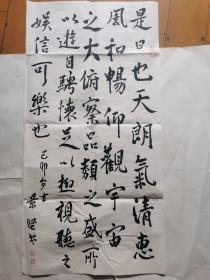 是日也天朗氣清惠
風和暢仰觀宇宙
之大俯察品類之盛所
以遊目騁懷足以極視聽之
娛信可樂也 己卯